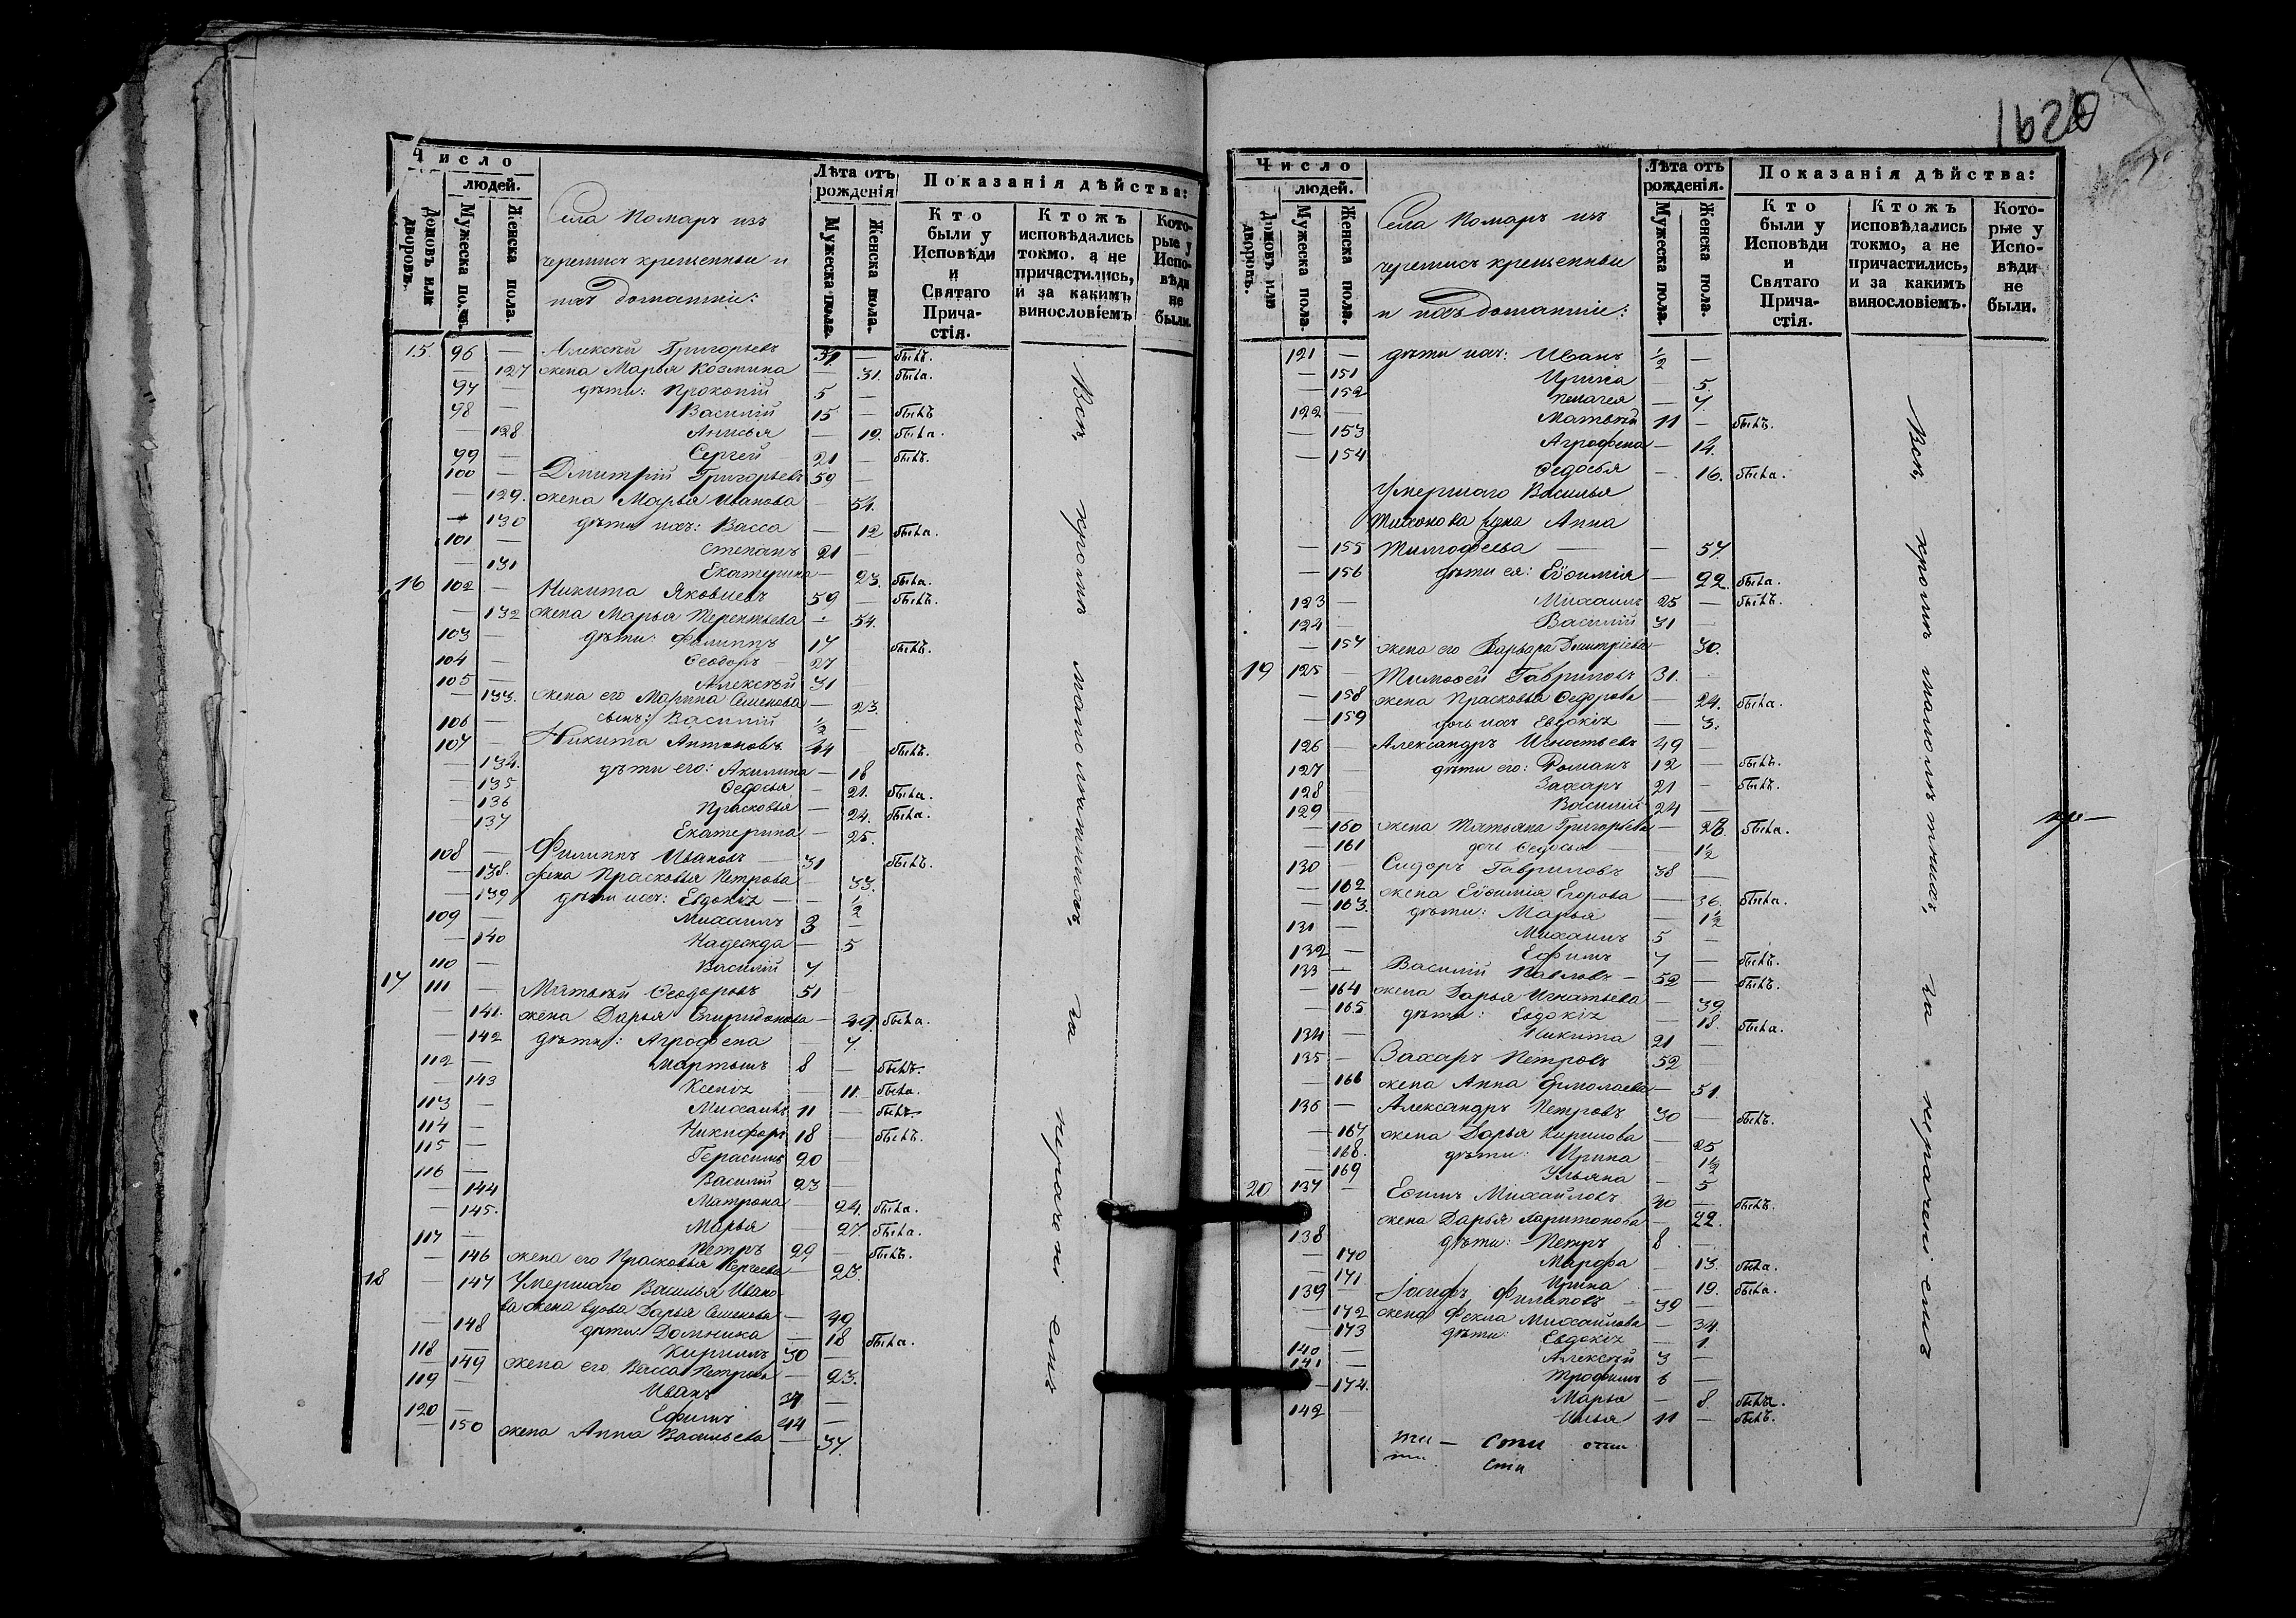 Число
людей.
Домовъ или дворовъ.
Мужеска пола.
Женска пола.
Села Помаръ изъ
черемисъ крещенныи и
ихъ домашніи:
Лѣта отъ рожденія
Мужеска пола.
Женска пола.
Показанія дѣйства:
Кто были у Исповѣди и Святаго Причастія.
Ктожъ исповѣдались токмо, а не причастились, и за какимъ винословіемъ
Которые у Исповѣди не были.
15. 96 — Алексѣй Григорьевъ 31. — былъ.
— 127 жена Марья Козмина 31. была.
97 — дѣти: Прокопій 5 —
98 — Василій 15 — былъ
— 128 Анисья — 19. была.
99 — Сергей 21 — былъ.
100 — Дмитрій Григорьевъ 59 —
— 129. жена Марья Иванова — 54.
— 130 дѣти ихъ: Васса — 12 была.
101 — Степанъ 21 —
— 131 Екатерина — 23. была.
16 102 — Никита Яковлевъ 59 — былъ.
— 132 жена Марья Терентьева — 54.
103 — дѣти: Филиппъ 17 былъ.
104 — Ѳеодоръ 27
105 — Алексѣй 31
— 133. жена его Марина Семенова — 23.
106 — сынъ: Василій 1/2 —
107 — Никита Антоновъ 44 былъ.
— 134. дѣти его: Акилина — 18
— 135 Ѳедосья — 21. была.
— 136 Прасковья — 24. была.
— 137 Екатерина — 25.
108 — Филиппъ Ивановъ — 31 былъ.
— 138. жена Прасковья Петрова — 33.
— 139 дѣти ихъ: Евдокія — 1/2
109 — Михаилъ 3 —
— 140 Надежда — 5
110 — Василій 7
17 111 — Матвѣй Ѳеодоровъ 51 —
— 141. жена Дарья Спиридонова — 49. была.
— 142 дѣти: Агрофена — 7.
112 — Мартынъ 8 — былъ.
— 143 Ксенія — 11. была.
113 — Михаилъ 11 — былъ.
114 — Никифоръ 18 — былъ.
115 — Герасимъ 20 —
116 — Василій 23 —
— 144 Матрона — 24. была.
— 145. Марья — 27. была.
117 — Петръ 29 — былъ.
— 146 жена его Прасковья Сергеева — 23.
18 — 147 Умершаго Василья Ивано-
ва жена вдова Дарья Семенова — 49
— 148 дѣти: Домника — 18 была.
118 — Кириллъ 30 —
— 149 жена его Васса Петрова — 23.
119 — Иванъ 34 —
120 — Ефимъ 44 —
— 150 жена Анна Васильева — 37.
Всѣ, кромѣ малолѣтнихъ, за нераченіемъ
1620
Число
людей.
Домовъ или дворовъ.
Мужеска пола.
Женска пола.
Села Помаръ изъ
черемисъ крещенныи
и ихъ домашніи:
Лѣта отъ рожденія.
Мужеска пола.
Женска пола.
Показанія дѣйства:
Кто были у Исповѣди и Святаго Причастія.
Ктожъ исповѣдались токмо, а не причастились, и за какимъ винословіемъ.
Которые у Исповѣди не были.
121 — дѣти ихъ: Иванъ 1/2 —
— 151 Ирина — 5.
— 152 Пелагея — 7.
122 — Матвѣй 11 — былъ.
— 153 Агрофена — 14.
— 154 Ѳедосья — 16. была.
Умершаго Василья
Тихонова жена Анна
— 155 Тимофеева — — 57.
— 156 дѣти ея: Евѳимія — 22. была.
123 — Михаилъ 25 — былъ.
124 — Василій 31 —
— 157 жена его Варвара Дмитріева — 30.
19 125 — Тимоѳей Гавриловъ 31.
— 158 жена Прасковья Ѳедорова — 24. была.
— 159 дочь ихъ Евдокія — 3.
126 — Александръ Игнатьевъ 49 —
127 — дѣти его: Романъ 12 — былъ.
128 Захаръ 21 — былъ.
129 — Василій 24 —
— 160 жена Татьяна Григорьева — 28. была.
— 161 дочь Ѳедосья — 1/2
130 — Сидоръ Гавриловъ 38 —
— 162 жена Евѳимія Егорова — 36. была.
— 163. дѣти: Марья — 1 1/2
131 — Михаилъ 5 —
132 — Ефимъ 7 — былъ.
133 — Василій Павловъ — 52 — былъ.
— 164 жена Дарья Игнатьева — 39.
— 165 дѣти: Евдокія — 18. была.
134 — Никита 21 —
135 — Захаръ Петровъ 52 —
— 166 жена Анна Ермолаева — 51.
136 — Александръ Петровъ 30 — былъ.
— 167 жена Дарья Кирилова — 25
— 168. дѣти: Ирина — 1 1/2
— 169 Ульяна — 5
20 137 — Ефимъ Михайловъ 30 — былъ.
жена Дарья Харитонова — 22.
138 дѣти: Петръ 8. —
— 170 Марфа — 13. была.
— 171 Ирина — 19. была.
139 — Іосифъ Филиповъ — 39 —
— 172 жена Фекла Михайлова — 34.
— 173 дѣти: Евдокія — 1.
140 — Алексѣй 3 —
141 — Трофимъ 6 —
— 174. Марья — 8. была.
142 — Илья 11 — былъ.
Всѣ, кромѣ малолѣтнихъ, за нераченіемъ